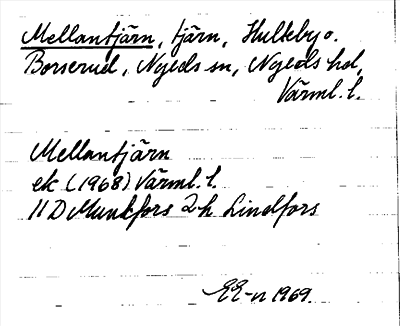 Mellantjärn, tjärn, Hultebyo.
Borserud, Nyeds sn, Nyeds hd,
Värml. l.
Mellantjärn
ek (1968) Värml. l.
11 D Munkfors 2h Lindfors
EE-n 1969.